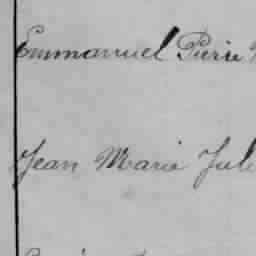 Emmanuel Pierre
Jean Marie Jul